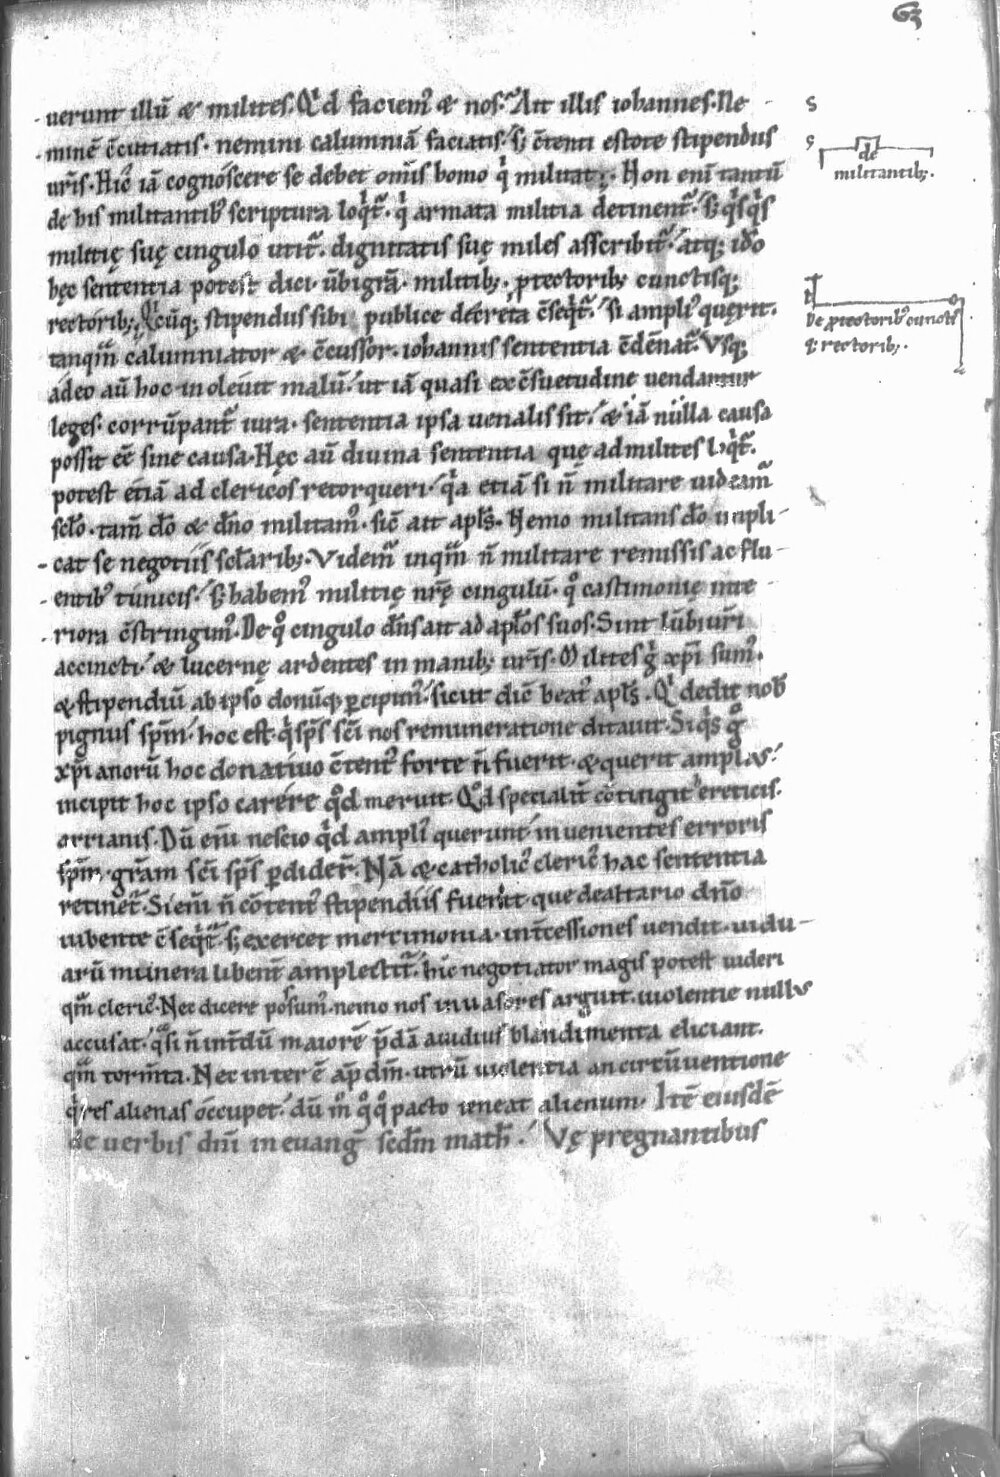 63
uerunt illū & milites. Qͥd faciemꝰ & nos. Ait illis iohannes. Ne
S
minē c̄cutiatis. nemini calumniā faciatis. sꝫ c̄tenti estote stipendiis
S
de
militantibꝫ.
uris. Hic iā cognoscere se debet omīs homo qͥ militat. Non enī tantū
de his militantibꝰ scriptura loqͥt᷑. qͥ armata militia detinent᷑. sꝫ qͥsqͥs
militię suę cingulo utit᷑. dignitatis suę miles asscribit᷑. atqꝫ iđo
hęc sententia potest dici. militibꝫ. ꝓtectoribꝫ cunctisqꝫ
rectoribꝫ. Qͥcūqꝫ stipendiis sibi publice decreta c̄seqͥt᷑. si ampliꝰ quęrit.
De ꝓtectoribꝰ cunctis
qꝫ rectoribꝫ.
tanqͣm calumniator & c̄cussor. iohannis sententia c̄dēnat᷑. Vsqꝫ
adeo aū hoc inoleuit malū. ut iā quasi ex c̄suetudine uendantur
leges. corrūpant᷑ iura. sententia ipsa uenalis sit. & iā nulla causa
possit eē sine causa. Hęc aū diuina sententia quę ad milites loqͥt᷑.
potest etiā ad clericos retorqueri. qͥa etiā si n̄ militare uideam᷑
sclo. tam̄ do & dn̄o militamꝰ. sic̄ ait apls. Nemo militans do impli
cat se negotiis sclaribꝫ. Videm᷑ inqͣm n̄ militare remissis ac flu
entibꝰ tunicis. sꝫ habemꝰ militię nrę cingulū. qͦ castimonię inte
riora c̄stringimꝰ. De qͦ cingulo dn̄s ait ad aplos suos. Sint lūbi uri
accincti. & lucernę ardentes in manibꝫ uris. Milites gͥ xp̄i sumꝰ.
& stipendiū ab ipso donūqꝫ ꝑcipimꝰ. sicut dic̄ beatꝰ apls. Qͥ dedit nob
pignus sp̄m. hoc est. qͥ sp̄s sc̄i nos remuneratione ditauit. Siqͥs gͦ
xp̄ianorū hoc donatiuo c̄tentꝰ forte n̄ fuerit. & querit amplas.
incipit hoc ipso carere qͦd meruit. Qͦd specialit̄ cōtingit ereticis.
arrianis. Dū enī nescio qͥd ampliꝰ querunt. inuenientes erroris
sp̄m. gr̄am sc̄i sp̄s ꝑdider̄. Nā & catholicꝰ clericꝰ hac sententia
retinet᷑. Si enī n̄ cōtentꝰ stipendiis fuerit. que de altario dn̄o
iubente c̄seqͥt᷑. sꝫ exercet mercimonia. int̄cessiones uendit. uidu
arū munera libent̄ amplectit᷑. hic negotiator magis potest uideri
qͣm clericꝰ. Nec dicere possumꝰ. nemo nos inuasores arguit. uiolentie nullus
accusat. qͣsi n̄ int̄dū maiorē p̄dā auidius blandimenta eliciant.
qͣm torm̄ta. Nec interē ap̄ dm̄. utrū uiolentia an circūuentione
qͥs res alienas occupet. dū m̄ qͦqͦ pacto teneat alienum. Itē eiusdē
de uerbis dn̄i in euanḡ scd̄m math̄. Vę pregnantibus